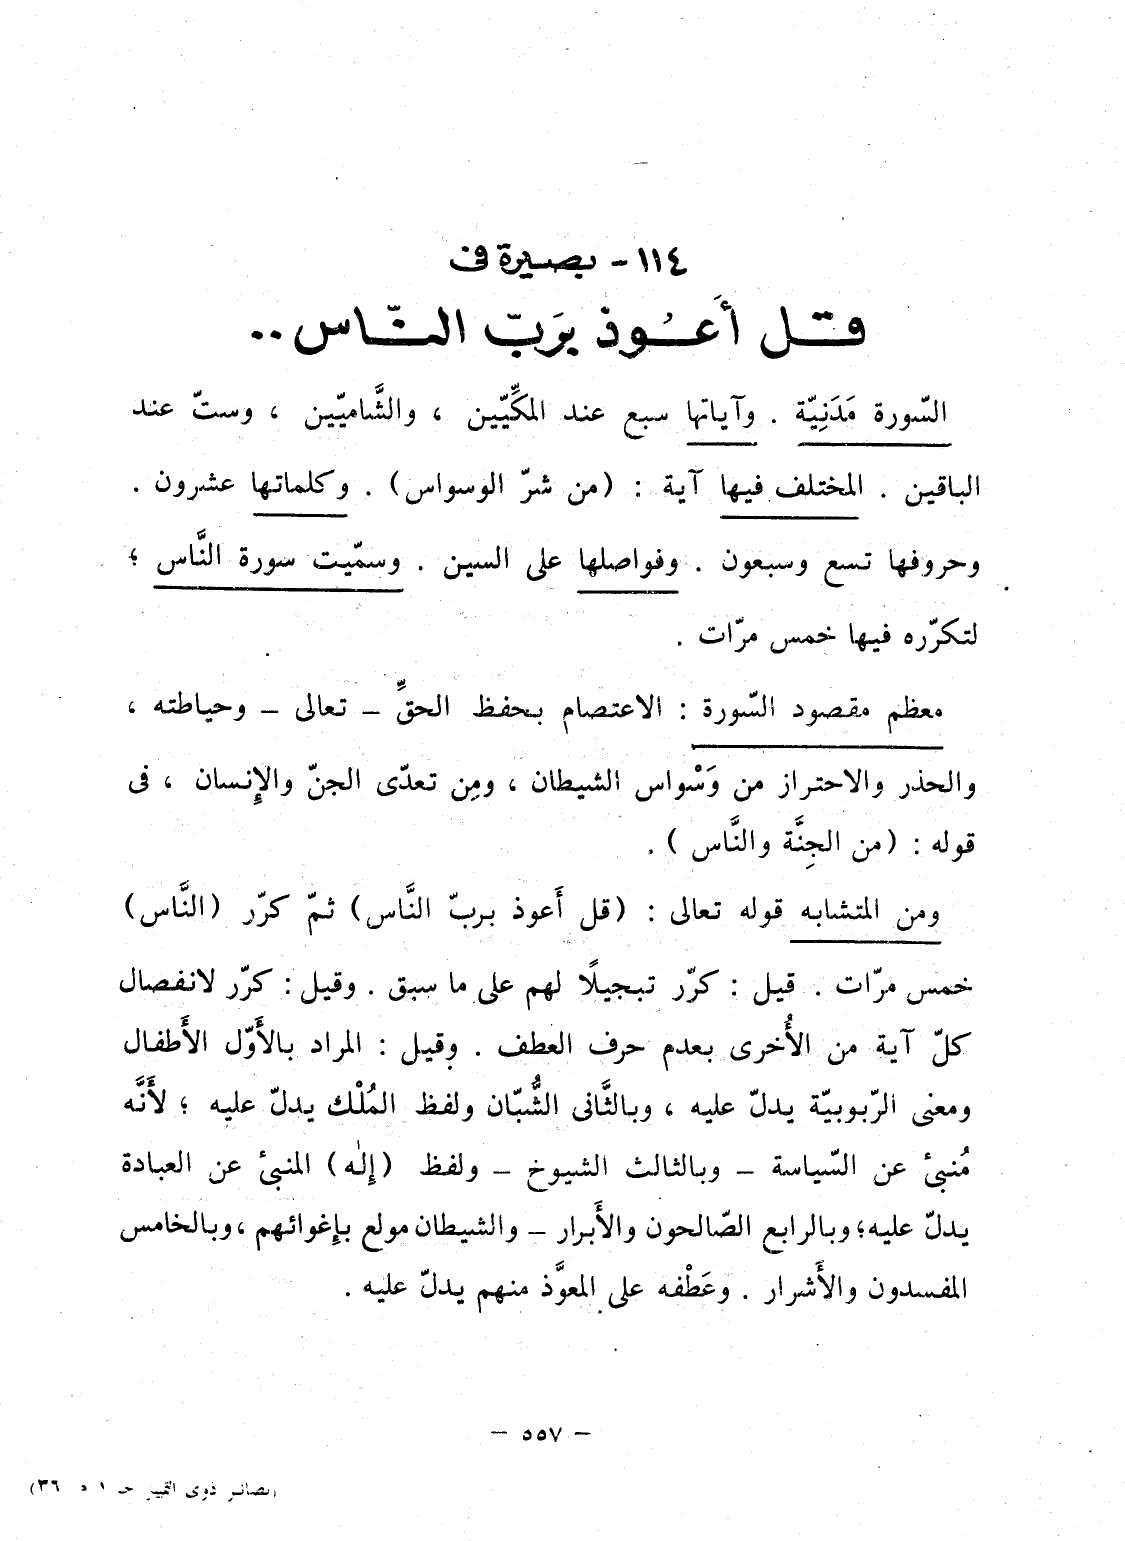 ١١٤ - بصيرة فى
قل أَعُوذ بِرَبّ النّاس ..
السّورة مَدَنِيّة . وآياتها سبع عند المكِّيّين ، والشَّاميّين ، وستّ عند
الباقين . المختلف فيها آية : (من شرّ الوسواس) . وكلماتها عشرون .
وحروفها تسع وسبعون . وفواصلها على السين . وسمّيت سورة النَّاس ؛
لتكرّره فيها خمس مرّات .
معظم مقصود السّورة : الاعتصام بحفظ الحقِّ – تعالى – وحياطته ،
والحذر والاحتراز من وَسْواس الشيطان ، ومِن تعدّى الجنّ والإِنسان ، فى
قوله : (من الجِنَّة والنَّاس ) .
ومن المتشابه قوله تعالى : (قل أَعوذ بربّ النَّاس) ثمّ كرّر (النَّاس)
خمس مرّات . قيل : كرّر تبجيلًا لهم على ما سبق . وقيل : كرّر لانفصال
كلّ آية من الأُخرى بعدم حرف العطف . وقيل : المراد بالأَوّل الأَطفال
ومعنى الرّبوبيّة يدلّ عليه ، وبالثَّانى الشُّبّان ولفظ المُلْك يدلّ عليه ؛ لأَنَّه
مُنبئ عن السّياسة – وبالثالث الشيوخ – ولفظ (إِلٰه) المنبئ عن العبادة
يدلّ عليه؛ وبالرابع الصّالحون والأَبرار – والشيطان مولع بإِغوائهم ، وبالخامس
المفسدون والأَشرار . وعَطْفه على المعوَّذ منهم يدلّ عليه .
— ٥٥٧ —
(بصائر ذوى التمييز جـ ١ م ٣٦)